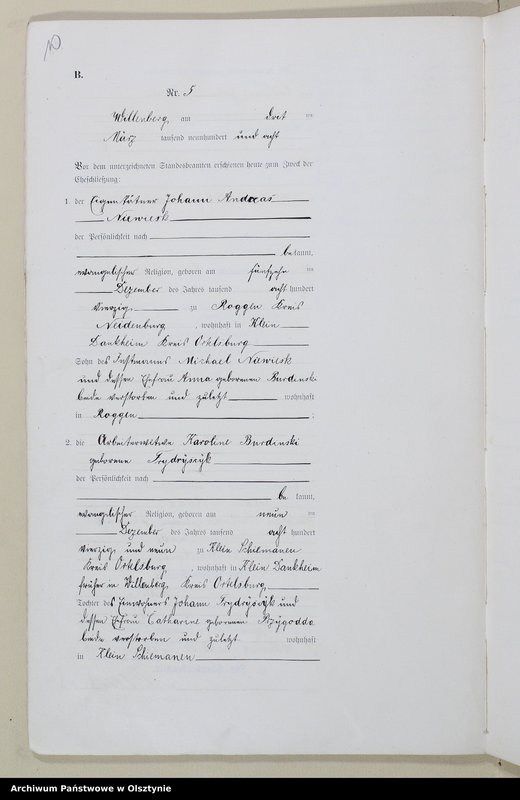 10
B.
Nr. 5
Willenberg, am drei ten
März tausend neunhundert und acht
Vor dem unterzeichneten Standesbeamten erschienen heute zum Zweck der
Eheschließung:
1. der Eigenkätner Johann Andreas
Nawiesk
der Persönlichkeit nach
be kannt,
evangelischer Religion, geboren am fünfzehn ten
Dezember des Jahres tausend acht hundert
vierzig zu Roggen Kreis
Neidenburg, wohnhaft in Klein
Dankheim Kreis Ortelsburg
Sohn des Instmanns Michael Nawiesk
und dessen Ehefrau Anna geborenen Burdenski
beide verstorben und zuletzt wohnhaft
in Roggen ;
2. die Arbeiterwitwe Karoline Burdenski
geborene Frydryszyk
der Persönlichkeit nach
be kannt,
evangelischer Religion, geboren am neun ten
Dezember des Jahres tausend acht hundert
vierzig und neun zu Klein Schiemanen
Kreis Ortelsburg, wohnhaft in Klein Dankheim
früher in Willenberg, Kreis Ortelsburg,
Tochter des Einwohners Johann Frydryszyk und
dessen Ehefrau Catharine geborenen
beide verstorben und zuletzt wohnhaft
in Klein Schiemanen
Archiwum Państwowe w Olsztynie